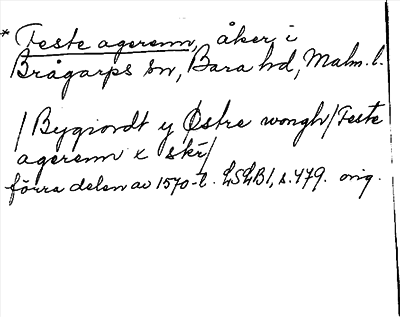 * Feste agerenn, åker i
Brågarps sn, Bara hd, Malm. l.
/Bygiordt y Østre wongh/Feste
agerenn x skr/
förra delen av 1570-t. LSLB1, s. 479. orig.